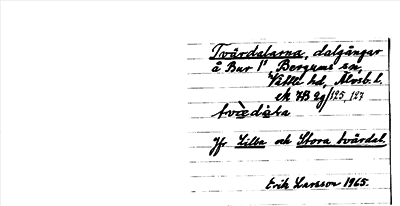 Tvärdalarna, dalgångar
å Bur 1¹, Bergums sn,
Vättle hd, Älvsb. l.
ek KB 2g/125, 127
Jfr Lilla och Stora tvärdal.
Erik Larsson 1965.